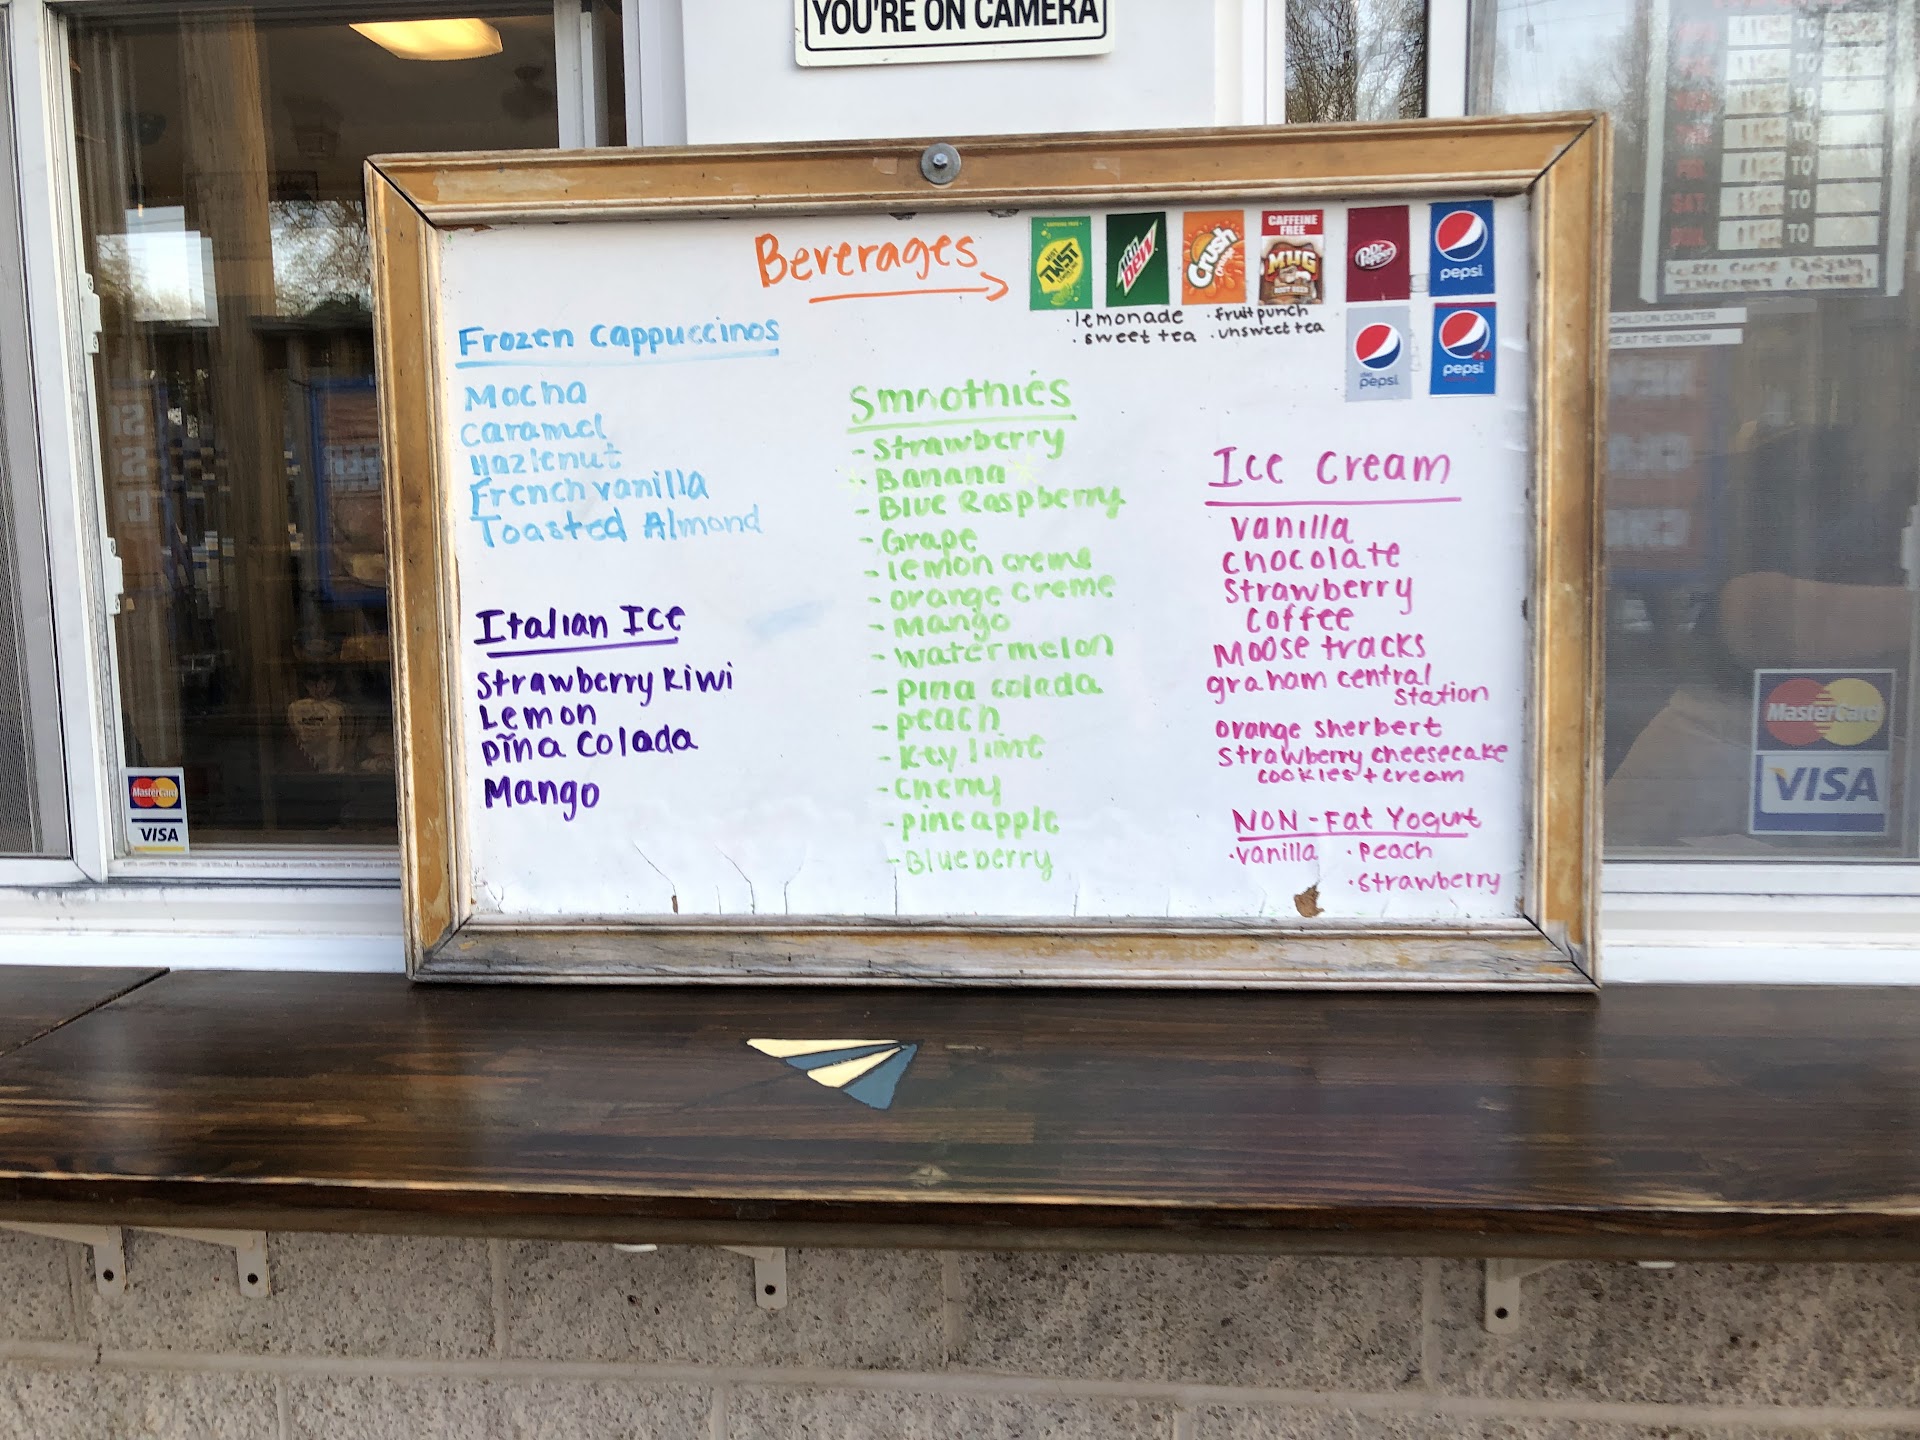 YOU'RE ON CAMERA
Beverages
TWIST
mtn dew
Crush
Orange
CAFFEINE
FREE
MUG
ROOT BEER
Dr Pepper
pepsi
diet
pepsi
pepsi
· lemonade · fruit punch
· sweet tea · unsweet tea
Frozen Cappuccinos
Mocha
Caramel
Hazlenut
French vanilla
Toasted Almond
Italian Ice
Strawberry Kiwi
Lemon
pĩna Colada
Mango
Smoothies
- Strawberry
- Banana
- Blue Raspberry
- Grape
- lemon creme
- orange creme
- Mango
- watermelon
- pina colada
- peach
- Key lime
- Cherry
- pineapple
- Blueberry
Ice Cream
vanilla
chocolate
Strawberry
Coffee
Moose tracks
graham central
station
orange sherbert
Strawberry cheesecake
cookies + cream
NON-Fat Yogurt
· vanilla · peach
· strawberry
MasterCard
VISA
MasterCard
VISA
TO
TO
TO
TO
TO
SAT. TO
TO
CHILD ON COUNTER
AT THE WINDOW